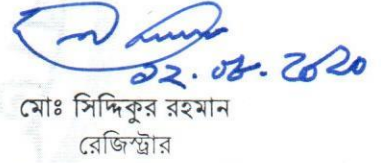 ১২.০৮.২০২০
মোঃ সিদ্দিকুর রহমান
রেজিস্ট্রার